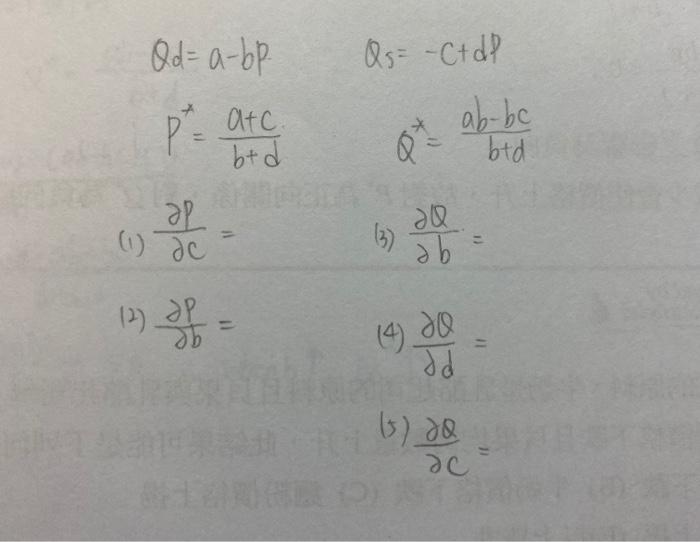 Qd = a-bP Qs = -c+dP
P* = a+c / b+d Q* = ab-bc / b+d
(1) ∂P/∂c = (3) ∂Q/∂b =
(2) ∂P/∂b = (4) ∂Q/∂d =
(5) ∂Q/∂c =